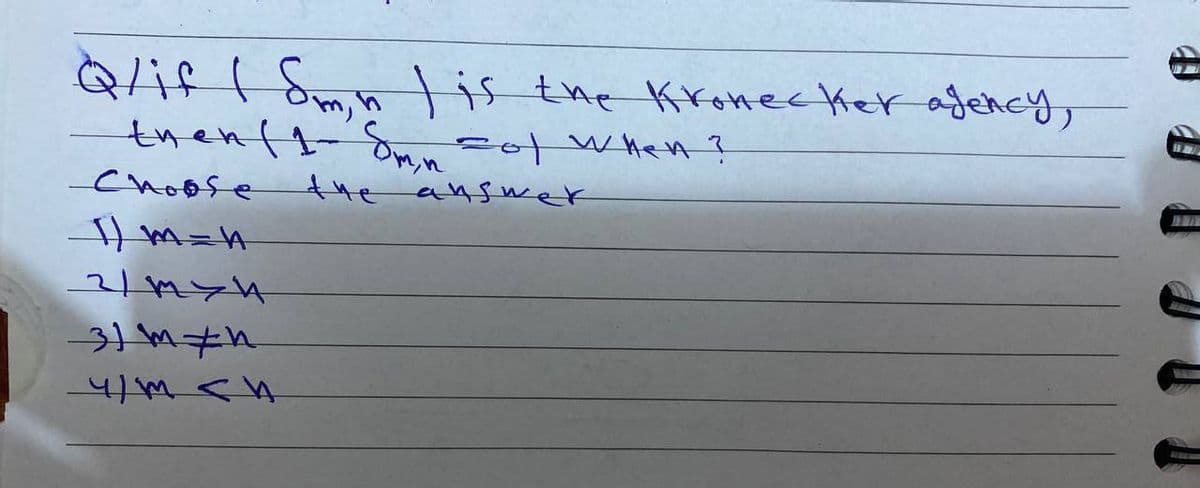 Q/if ( δm,n ) is the Kronecker agency,
then (1-δm,n =0) when?
Choose the answer
1) m=n
2) m>n
3) m≠n
4) m<n